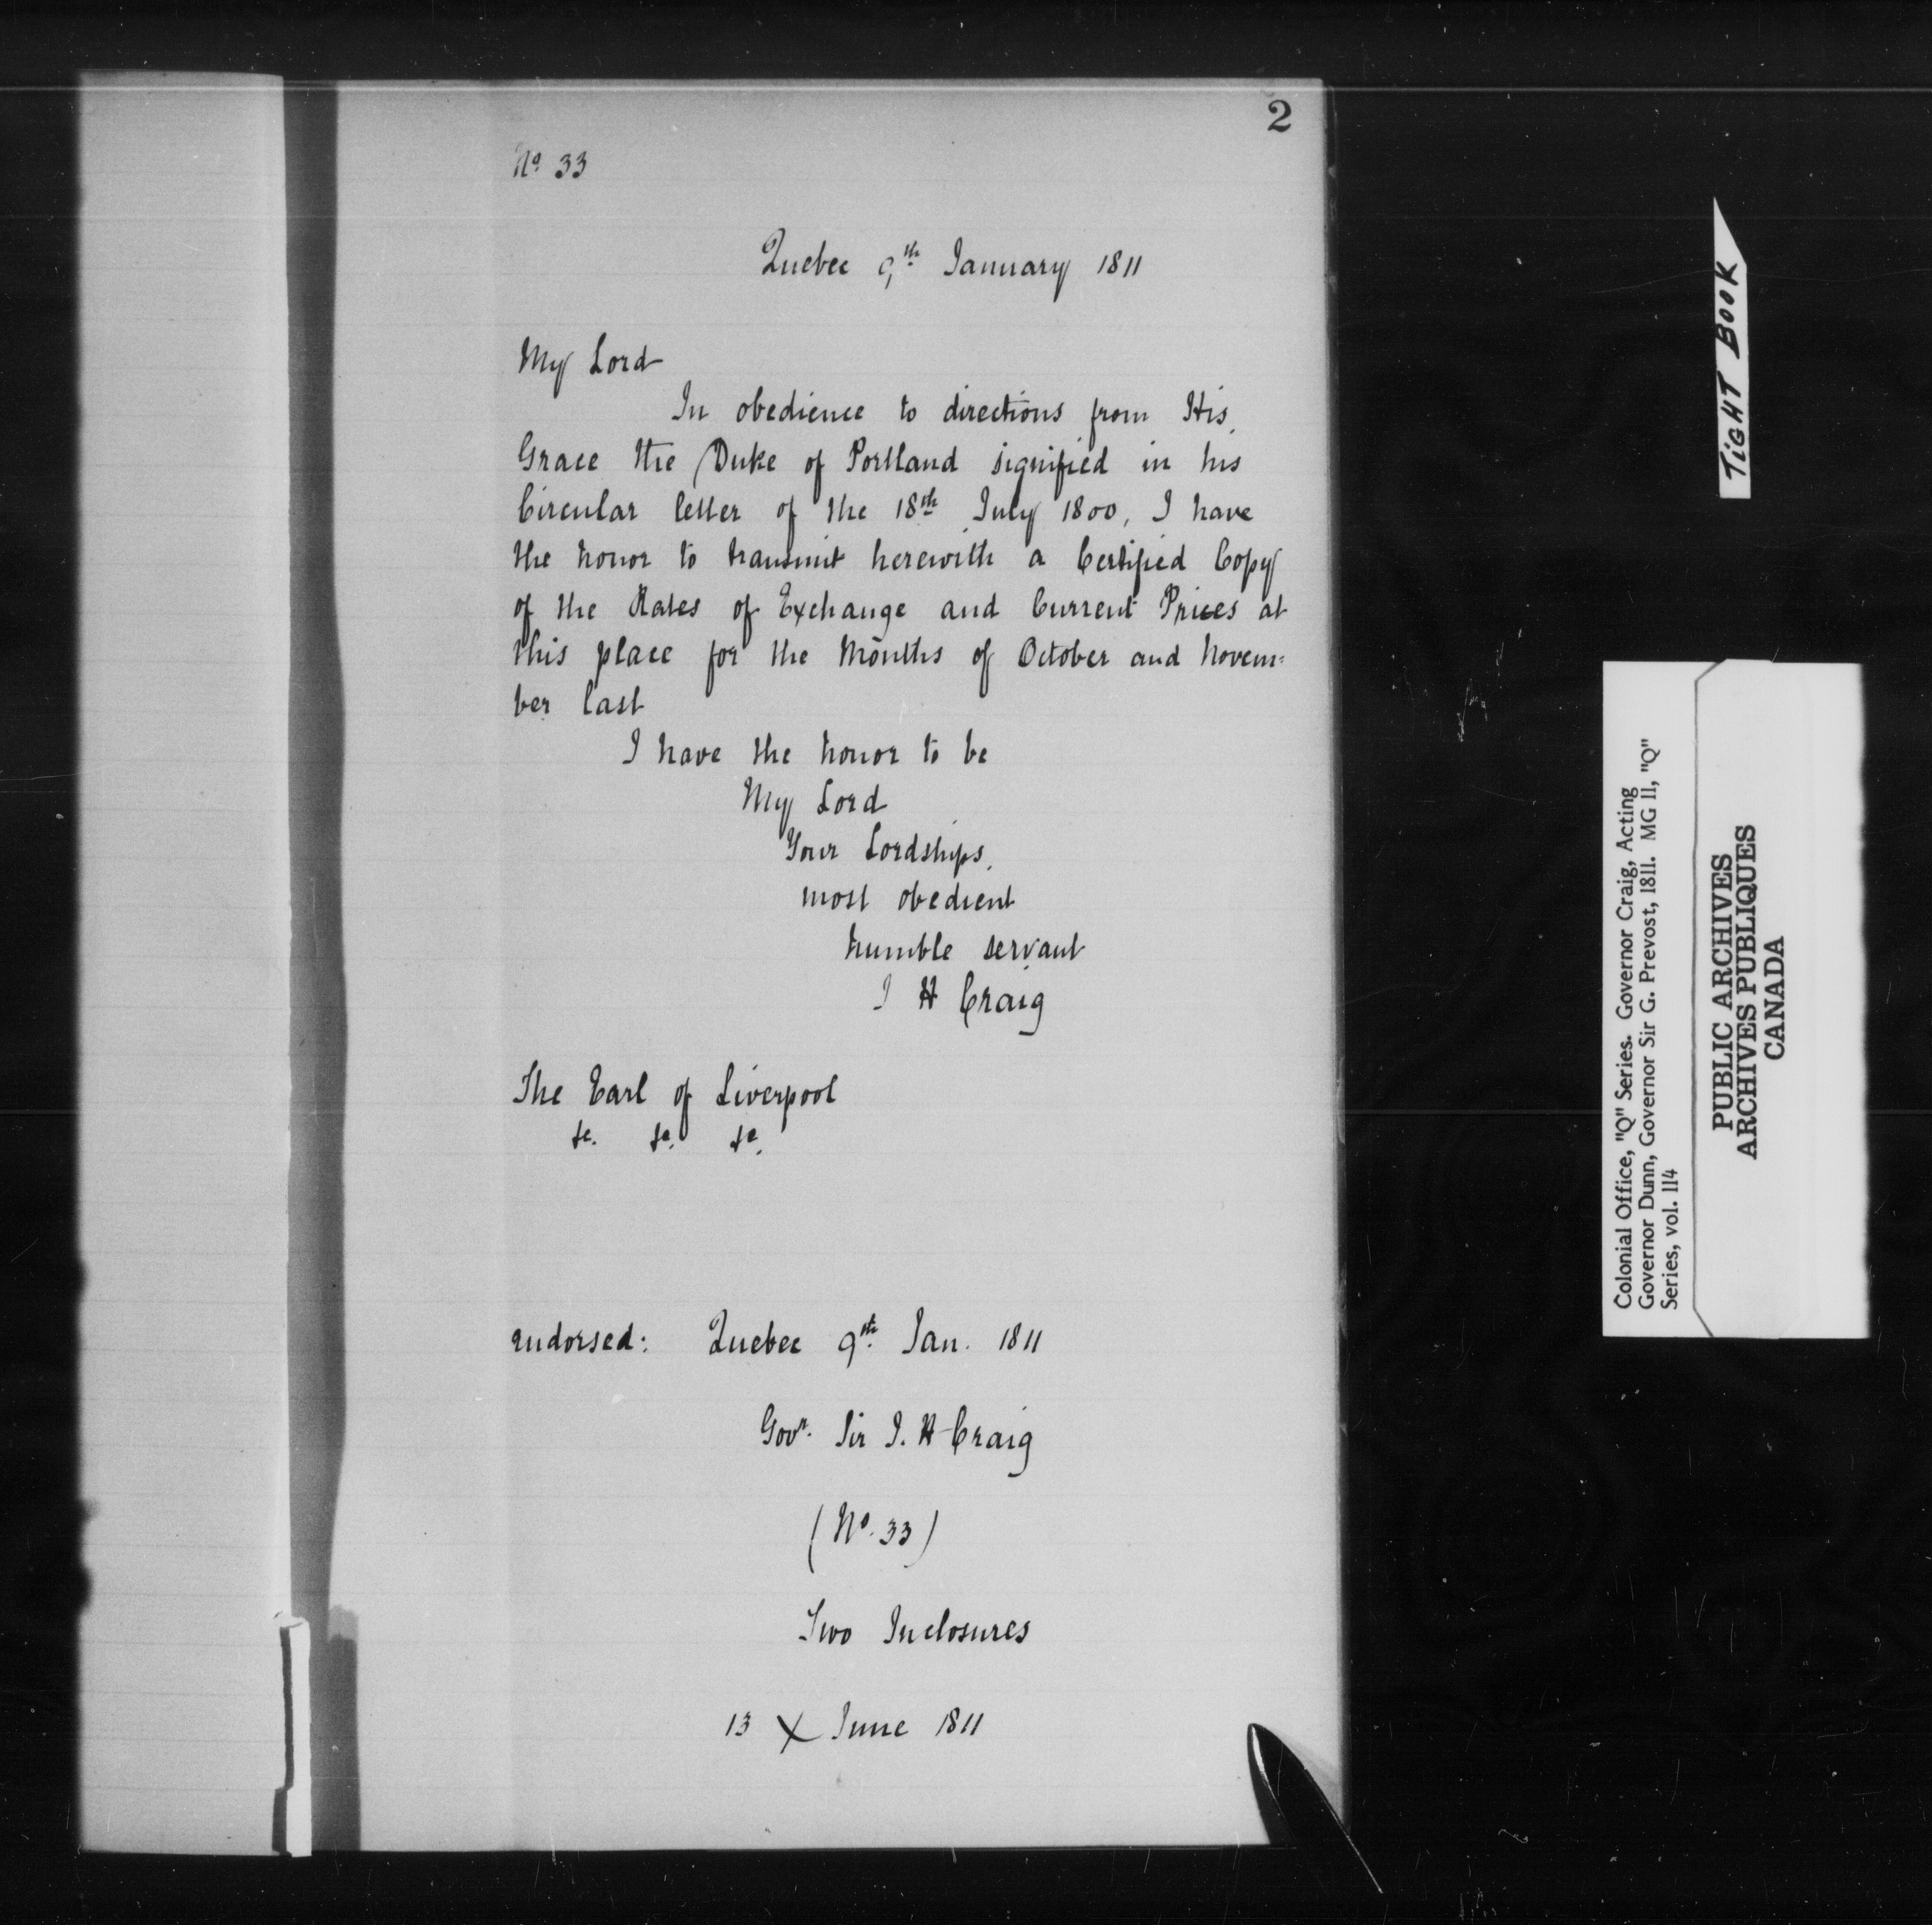 2
No. 33
Quebec 9th January 1811
My Lord
In obedience to directions from His
Grace the Duke of Portland signified in his
Circular letter of the 18th July 1800, I have
the honor to transmit herewith a Certified Copy
of the Rates of Exchange and Current Prices at
this place for the Months of October and Novem=
ber last
I have the honor to be
My Lord
Your Lordships
most obedient
humble servant
J H Craig
The Earl of Liverpool
&c. &c. &c.
endorsed: Quebec 9th Jan. 1811
Govr. Sir J. H Craig
(No. 33)
Two Inclosures
13 X June 1811
TIGHT BOOK
Colonial Office, "Q" Series. Governor Craig, Acting
Governor Dunn, Governor Sir G. Prevost, 1811. MG 11, "Q"
Series, vol. 114
PUBLIC ARCHIVES
ARCHIVES PUBLIQUES
CANADA